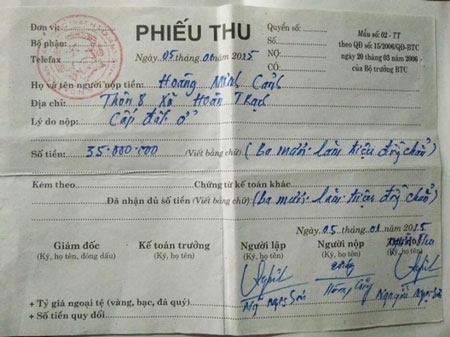 Đơn vị:
PHIẾU THU
Quyển số:
Mẫu số: 02 - TT
Bộ phận:
Số:
theo QĐ số: 15/2006/QĐ-BTC
Telefax
Ngày 05 tháng 01 năm 2015
NỢ:
ngày 20 tháng 03 năm 2006
CÓ:
của Bộ trưởng BTC
Họ và tên người nộp tiền: Hoàng Minh Cảnh
Địa chỉ: Thôn 8 Xã Hoàn Trạch
Lý do nộp: Cấp đất ở
Số tiền: 35.000.000 (Viết bằng chữ) (Ba mươi lăm triệu đồng chẵn)
Kèm theo Chứng từ kế toán khác
Đã nhận đủ số tiền (Viết bằng chữ) (Ba mươi lăm triệu đồng chẵn)
Ngày 05 tháng 01 năm 2015
Giám đốc Kế toán trưởng Người lập Người nộp
(Ký, họ tên, đóng dấu) (Ký, họ tên) (Ký, họ tên) (Ký, họ tên) (Ký, họ tên)
+ Tỷ giá ngoại tệ (vàng, bạc, đá quý)
+ Số tiền quy đổi